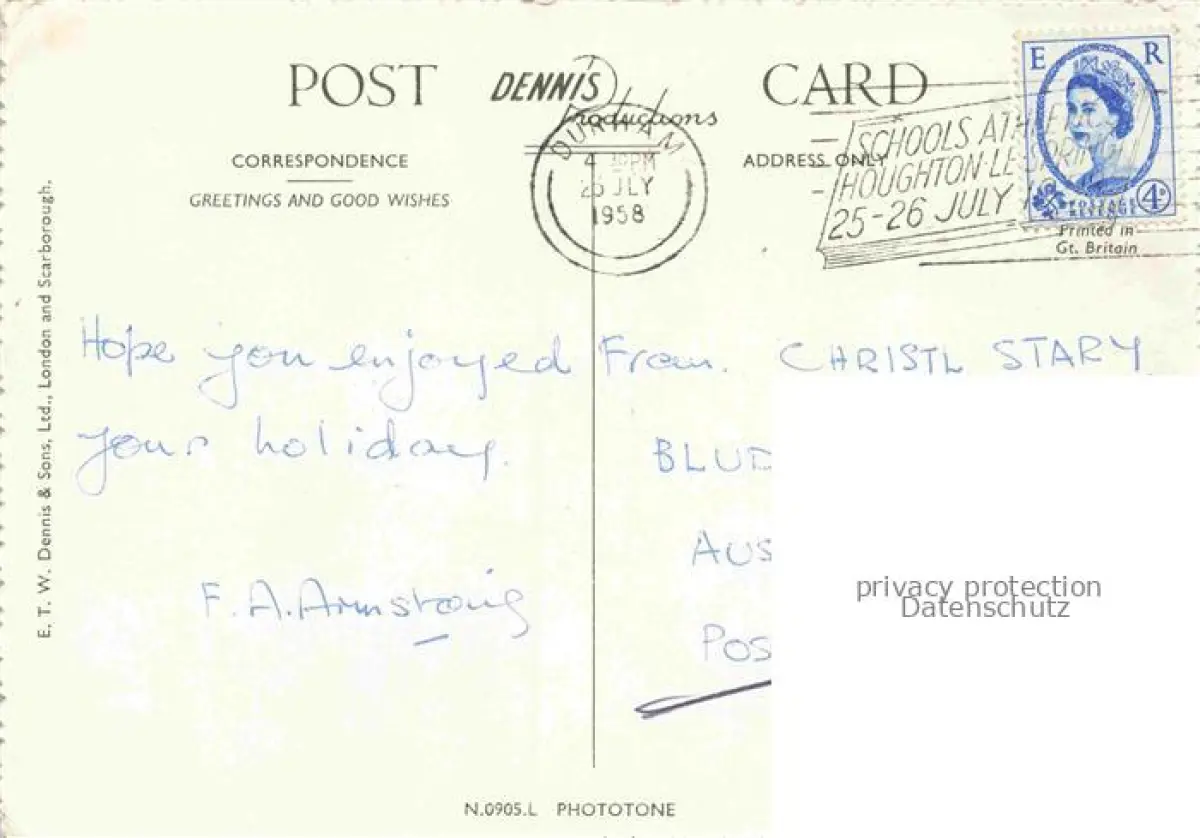 POST CARD
DENNIS
Productions
CORRESPONDENCE
GREETINGS AND GOOD WISHES
ADDRESS ONLY
DURHAM
4 30PM
JLY
1958
SCHOOLS ATHLETIC
HOUGHTON-LE-SPRING
25-26 JULY
E R
4D
POSTAGE
REVENUE
Printed in
Gt. Britain
E. T. W. Dennis & Sons, Ltd., London and Scarborough.
Hope you enjoyed
your holiday.
F. A. Armstrong
From. CHRISTL STARY
BLUD
AUS
POS
privacy protection
Datenschutz
N.0905.L PHOTOTONE